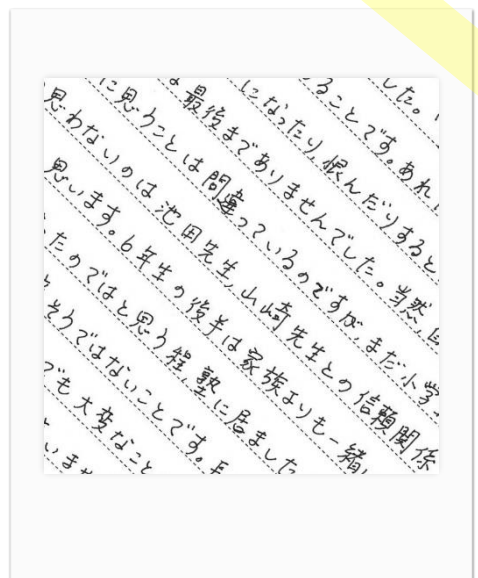 した。
ることです。あれ
になったり、恨んだりすると
最後までありませんでした。当然、
に思うことは間違っているのですが、まだ小学
思わないのは池田先生、山崎先生との信頼関係
思います。6年生の後半は家族よりも一緒
たのではと思う程、塾に居ました
そうではないことです。
でも大変なこと
いませ